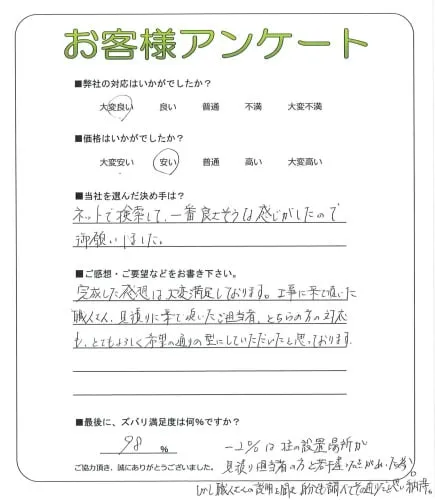 お客様アンケート
■弊社の対応はいかがでしたか？
大変良い 良い 普通 不満 大変不満
■価格はいかがでしたか？
大変安い 安い 普通 高い 大変高い
■当社を選んだ決め手は？
ネットで検索して、一番良さそうな感じがしたので
御願いしました。
■ご感想・ご要望などをお書き下さい。
完成した感想は大変満足しております。工事に来て頂いた
職人さん、見積りに来て頂いたご担当者、どちらの方の対応
も、とてもよろしく希望の通りの型にしていただいたと思っております
■最後に、ズバリ満足度は何%ですか？
98 %
ー2%は柱の設置場所が
ご協力頂き、誠にありがとうございました。
見積り担当者の方と若干違いがあった為。
しかし職人さんの説明を聞き、自分も調べてその通りだと思い納得。